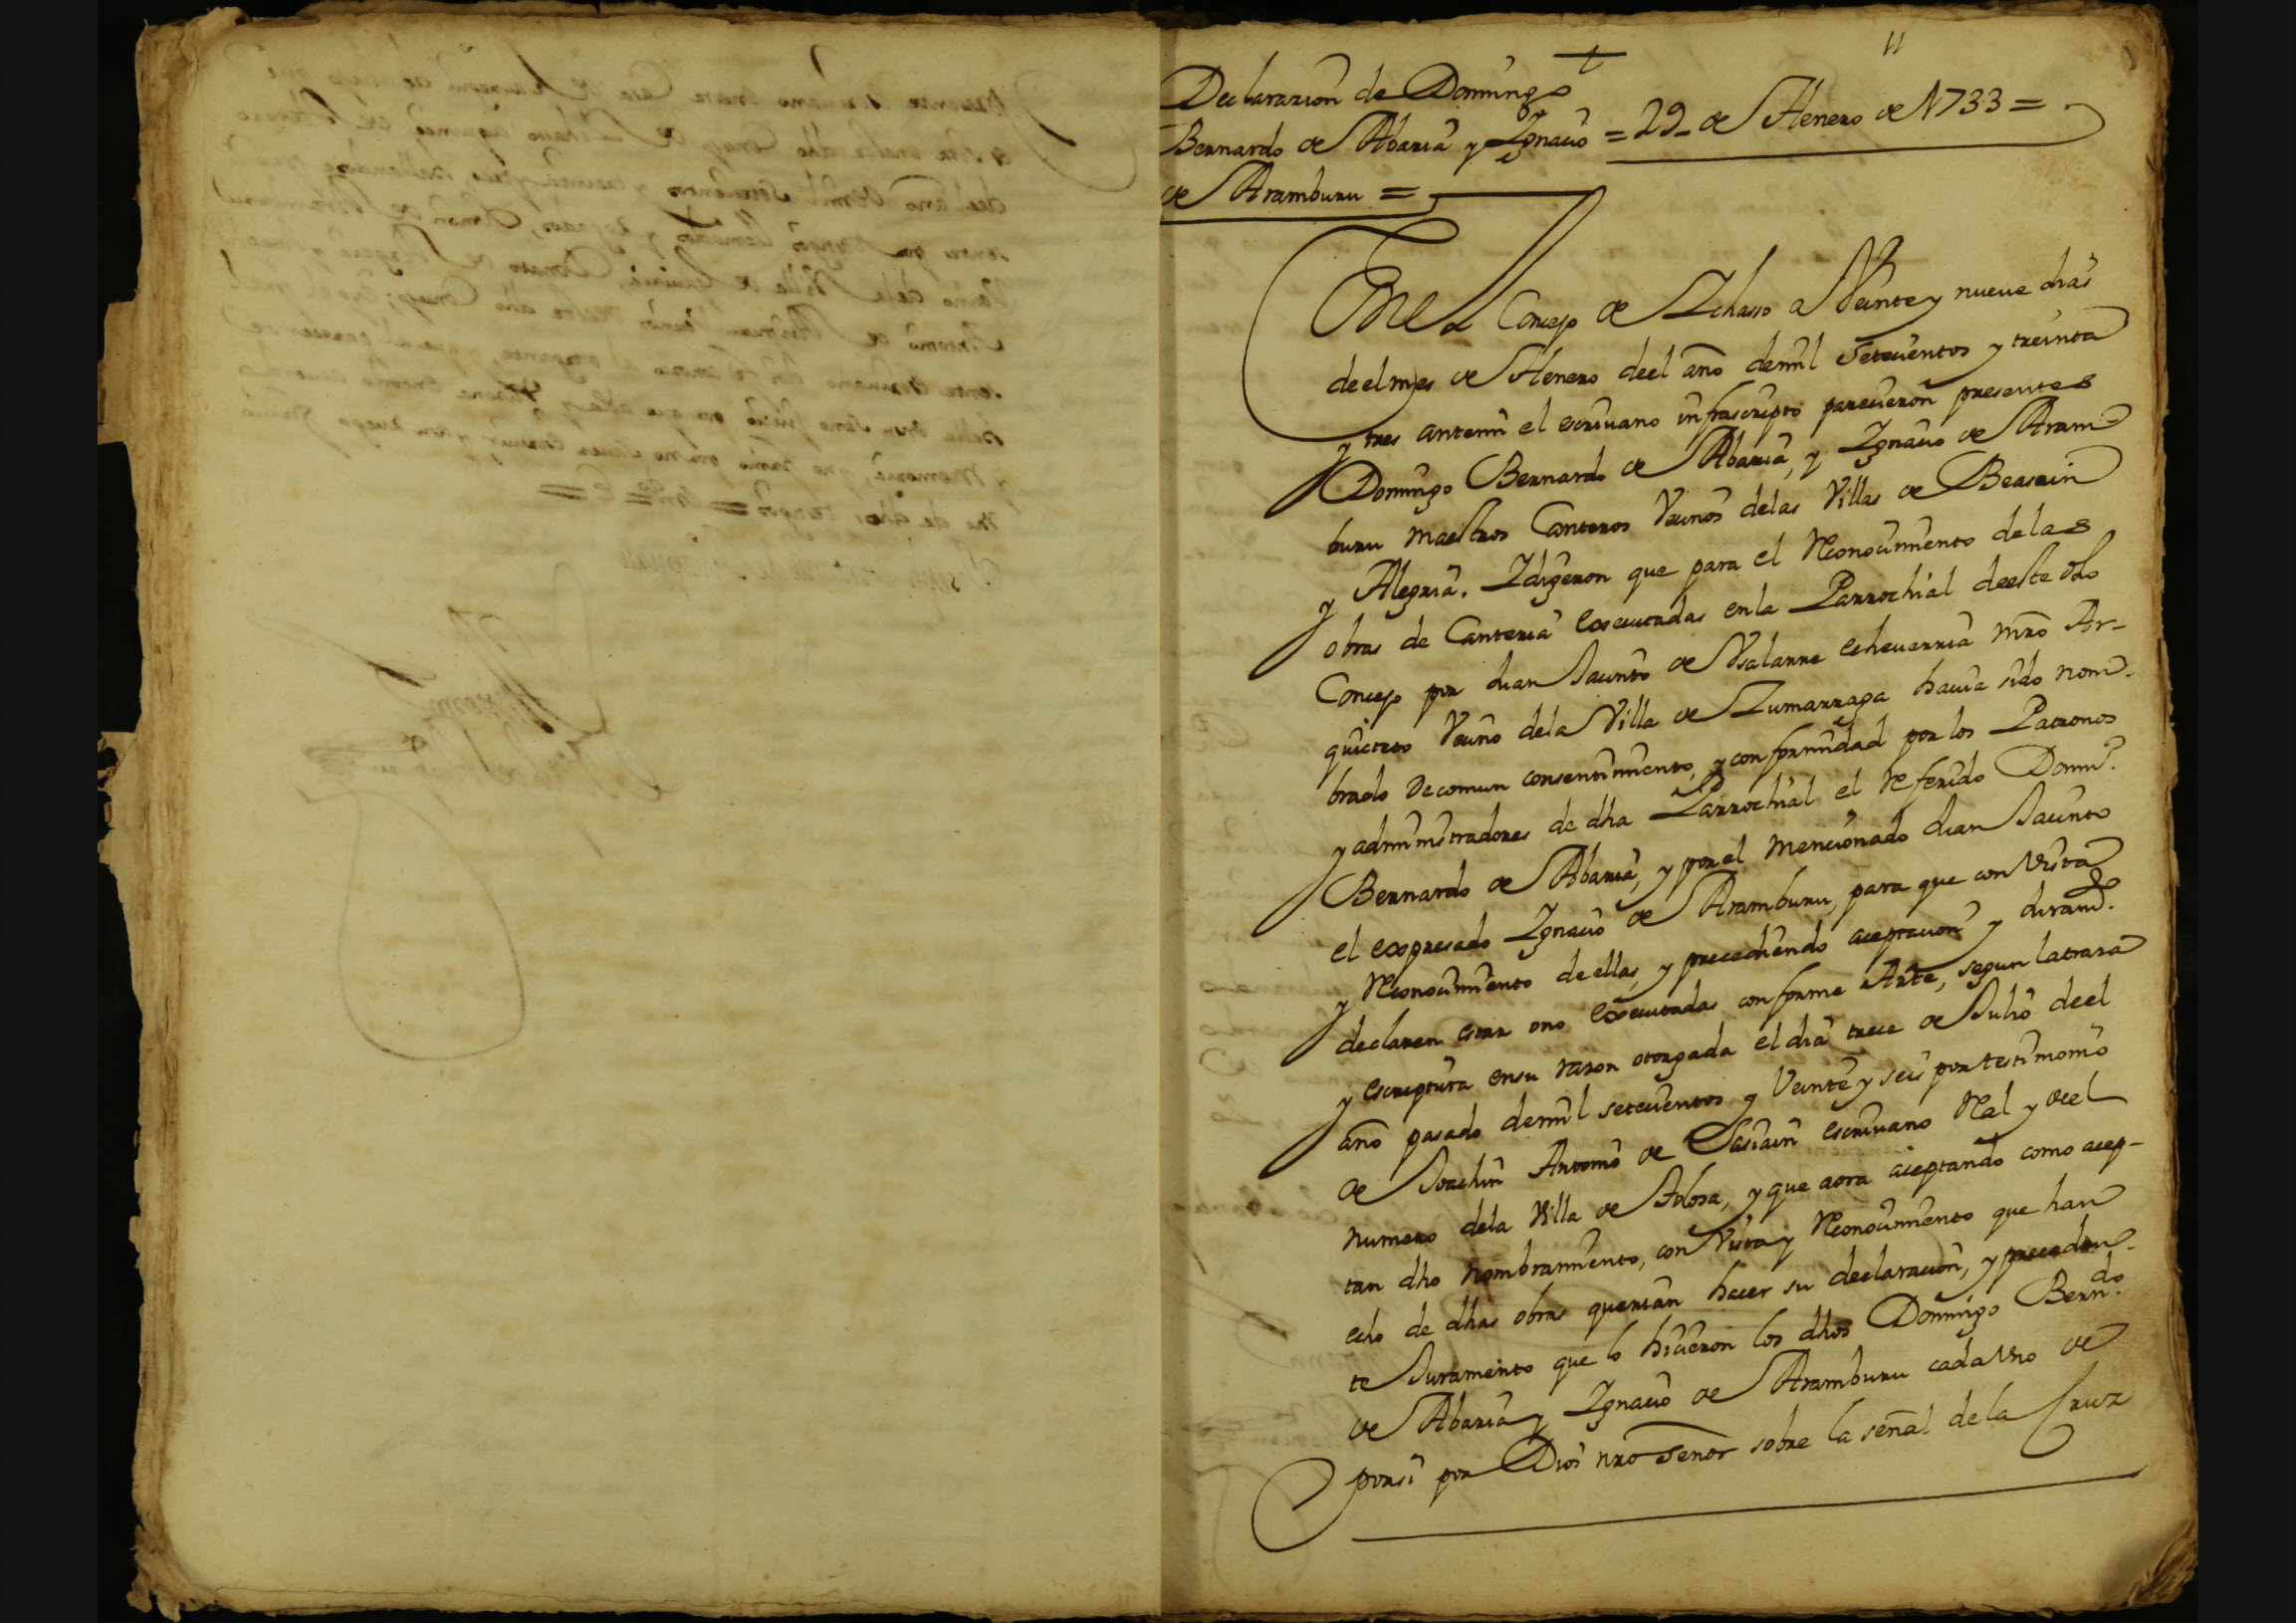 11
Declarazion de Domingo
Bernardo de Abaria y Ignacio = 29 de Henero de 1733 =
de Aramburu =
En el Concejo de Ichasso a Veinte y nueve dias
de el mes de Henero de el año de mil setecientos y treinta
y tres ante mi el escrivano infrascripto parecieron presentes
Domingo Bernardo de Abaria, y Ignacio de Aram=
buru maestros Canteros Vecinos de las Villas de Beasain
y Alegria. I dijeron que para el Reconocimiento de las
obras de Canteria executadas en la Parrochial de este dho
Concejo por Juan Jacinto de Vsalarre echeverria mro Ar-
quicteto Vecino de la Villa de Zumarraga havia sido nom-
brado de comun consentimiento, y conformidad por los Patronos
y administradores de dha Parrochial el Referido Domi.º
Bernardo de Abaria, y por el mencionado Juan Jacinto
el expresado Ignacio de Aramburu, para que con vista
y Reconocimiento de ellas, y precediendo aceptacion y juram.to
declaren estar o no executadas conforme Arte, segun la traza
y escriptura en su razon otorgada el dia trece de Julio de el
año pasado de mil setecientos y Veinte y seis por testimonio
de Joachin Antonio de Sasiain escrivano Rl y de el
numero de la Villa de Tolosa, y que aora aceptando como acep-
tan dho nombramiento, con Vista y Reconocimiento que han
echo de dhas obras querian hacer su declaracion, y preceden-
te Juramento que lo hicieron los dhos Domingo Bern.do
de Abaria y Ignacio de Aramburu cada vno de
por si por Dios nro señor sobre la señal de la Cruz